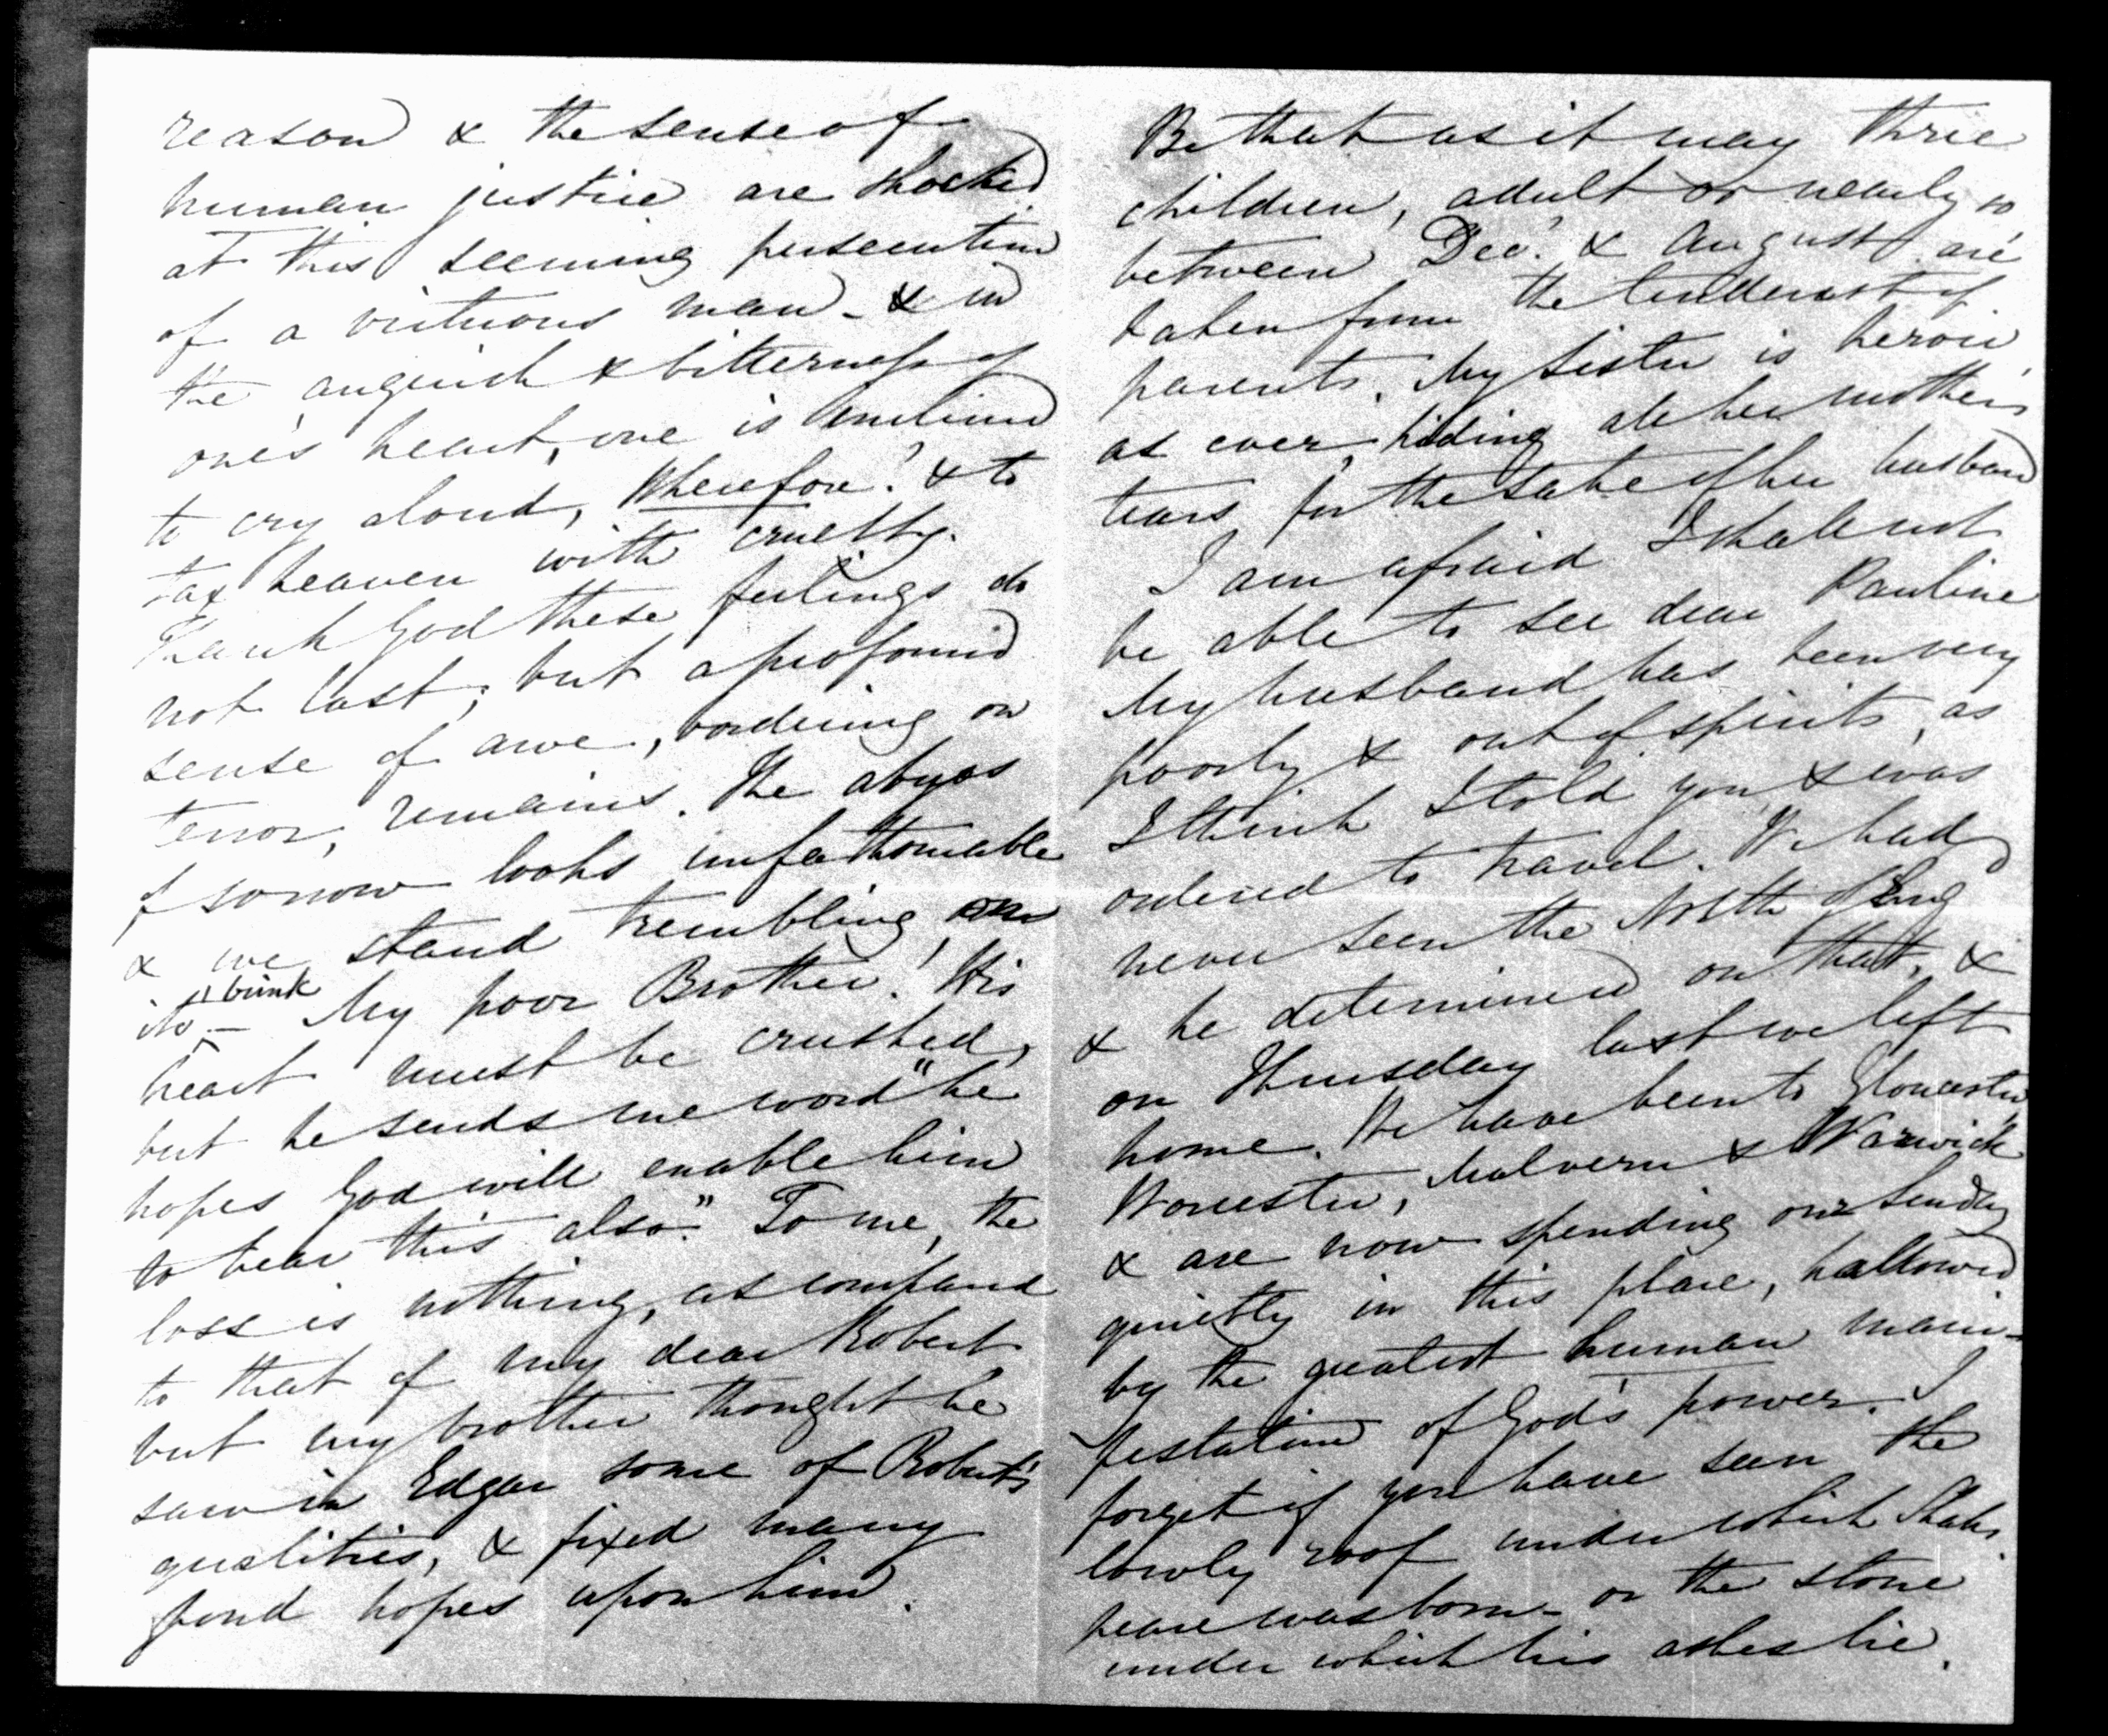 reason & the sense of
human justice are shocked
at this seeming persecution
of a virtuous man - & in
the anguish & bitterness of
one's heart, one is inclined
to cry aloud, Wherefore? & to
tax heaven with cruelty.
Thank God these feelings do
not last; but a profound
sense of awe, bordering on
terror, remains. The abyss
of sorrow looks unfathomable
& we stand trembling on
its brink - My poor Brother! His
heart must be crushed,
but he sends me word "he
hopes God will enable him
to bear this also." To me, the
loss is nothing, as compared
to that of my dear Robert
but my brother thought he
saw in Edgar some of Robert's
qualities, & fixed many
fond hopes upon him.
Be that as it may three
children, adult or nearly so
between Dec.r & August are
taken from the tenderest of
parents. My Sister is heroic
as ever, hiding all her mother's
tears for the sake of her husband
I am afraid I shall not
be able to see dear Pauline
My husband has been very
poorly & out of spirits, as
I think I told you & was
ordered to travel. We had
never seen the North of Eng
& he determined on that, &
on Thursday last we left
home. We have been to Gloucester
Worcester, Malvern & Warwick
& are now spending our Sunday
quietly in this place, hallowed
by the greatest human mani-
festation of God's power. I
forget if you have seen the
lowly roof under which Shaks-
peare was born - or the stone
under which his ashes lie.